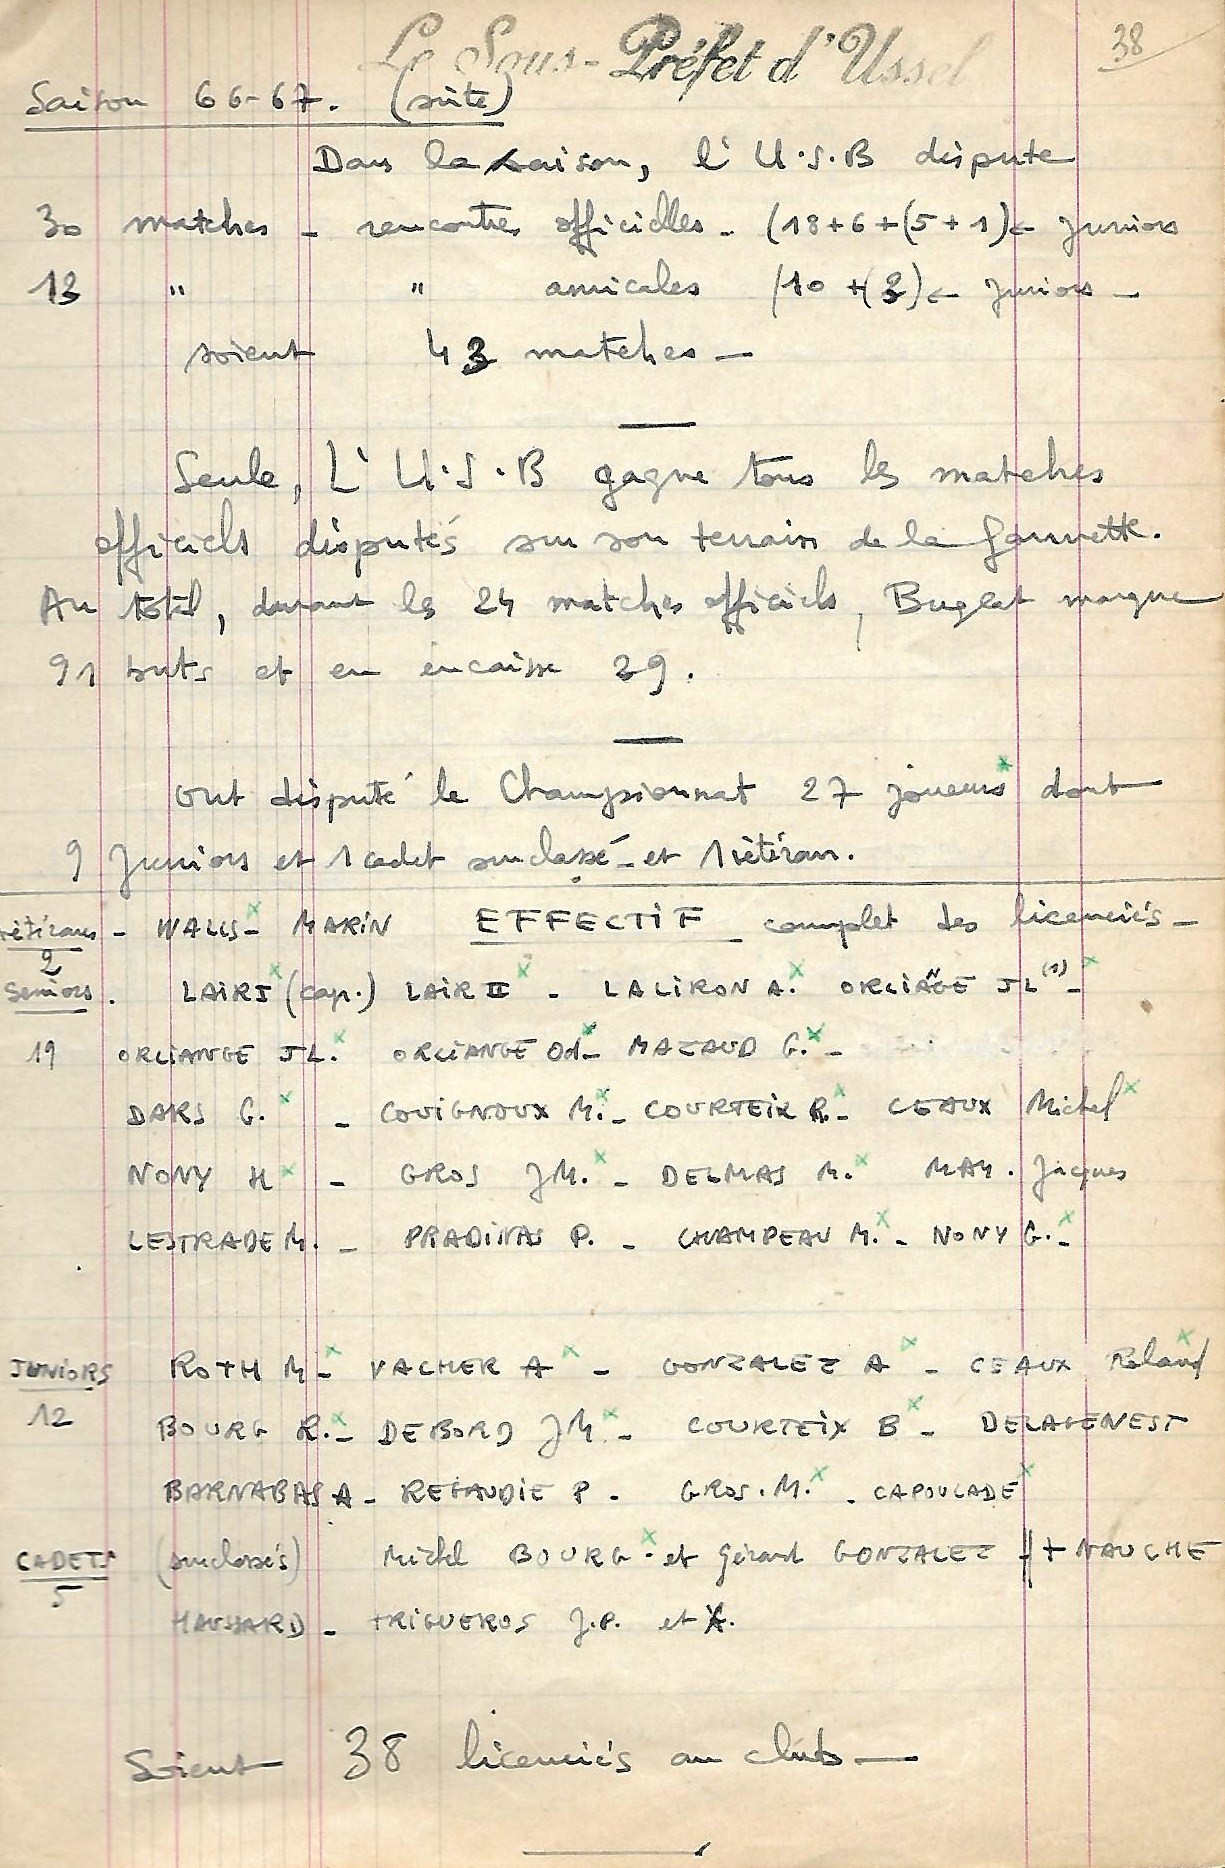 Le Sous-Préfet d'Ussel
38
Saison 66-67. (suite)
Dans la saison, l'U.S.B dispute
30 matches - rencontres officielles - (18+6+(5+1)← juniors
13 " " amicales (10+(3)← juniors -
soient 43 matches -
Seule, L'U.S.B gagne tous les matches
officiels disputés sur son terrain de la
Au total, durant les 24 matches officiels, Bugeat marque
91 buts et en encaisse 29.
Ont disputé le Championnat 27 joueurs* dont
9 Juniors et 1 cadet surclassé - et 1 vétéran.
vétérans - WALLS x - MARIN EFFECTIF complet des licenciés -
2
Seniors. LAIR I x (cap.) LAIR II x - LALIRON A. x ORLIANGE JL (1) x -
19 ORLIANGE JL. x ORLIANGE Od x - MAZAUD G. x -
DARS G. x - COUIGNOUX M. x - COURTEIX R. x - CEAUX Michel x
NONY H x - GROS JM. x - DELMAS M. x MAY. Jacques
LESTRADE M. - PRADINAS P. - CHAMPEAU M. x - NONY G. x -
JUNIORS ROTH M x - VACHER A x - GONZALEZ A x - CEAUX Roland x
12 BOURG R. x - DEBORD JM x - COURTEIX B x - DELAGENEST
BARNABAS A - REGAUDIE P - GROS. M. x - CAPOULADE x
CADETS (surclassés) Michel BOURG x - et Gérard GONZALEZ // + NAUCHE
5
HAUSSARD - TRIGUEROS J.P. et A.
Soient 38 licenciés au club -